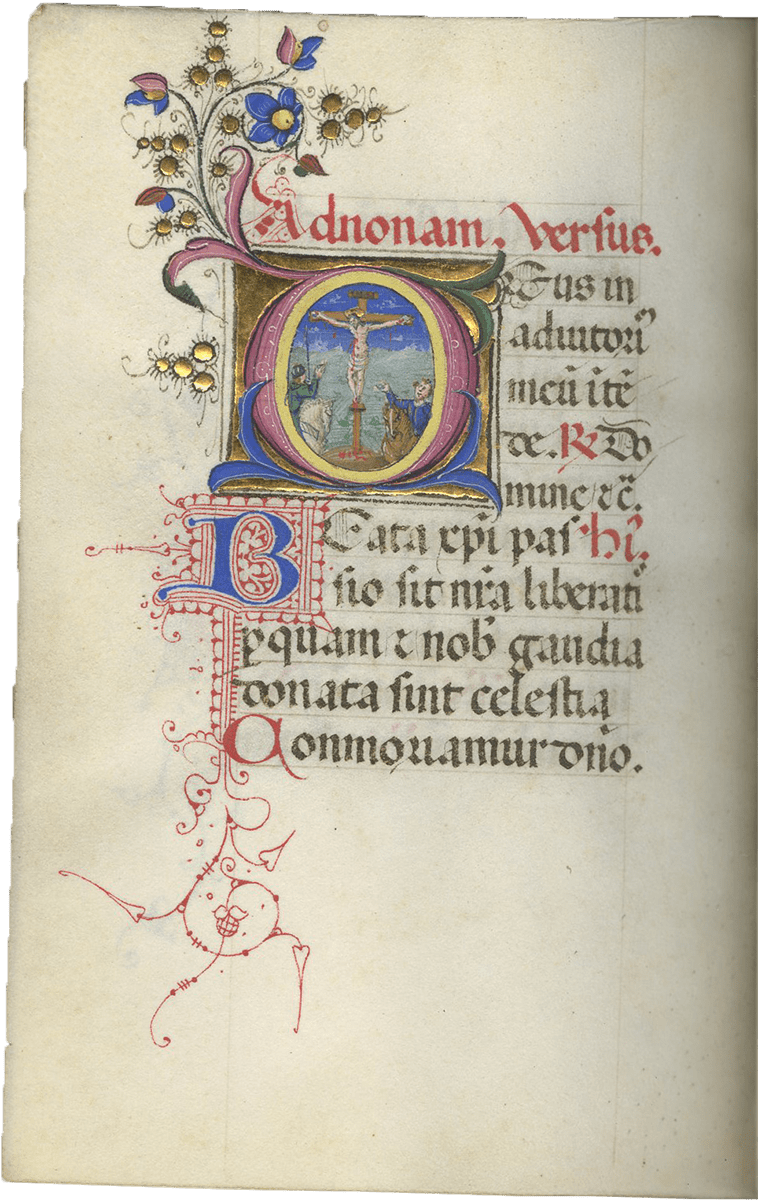 Ad nonam. Versus.
DEus in
adiutoriū
meū itē
de. ℟ Do
mine ⁊c̄.
BEata xp̄i pas hī.
sio sit nr̄a liberati
ꝑquam ⁊ nob̓ gaudia
donata sint celestia
Conmoriamur dn̄o.